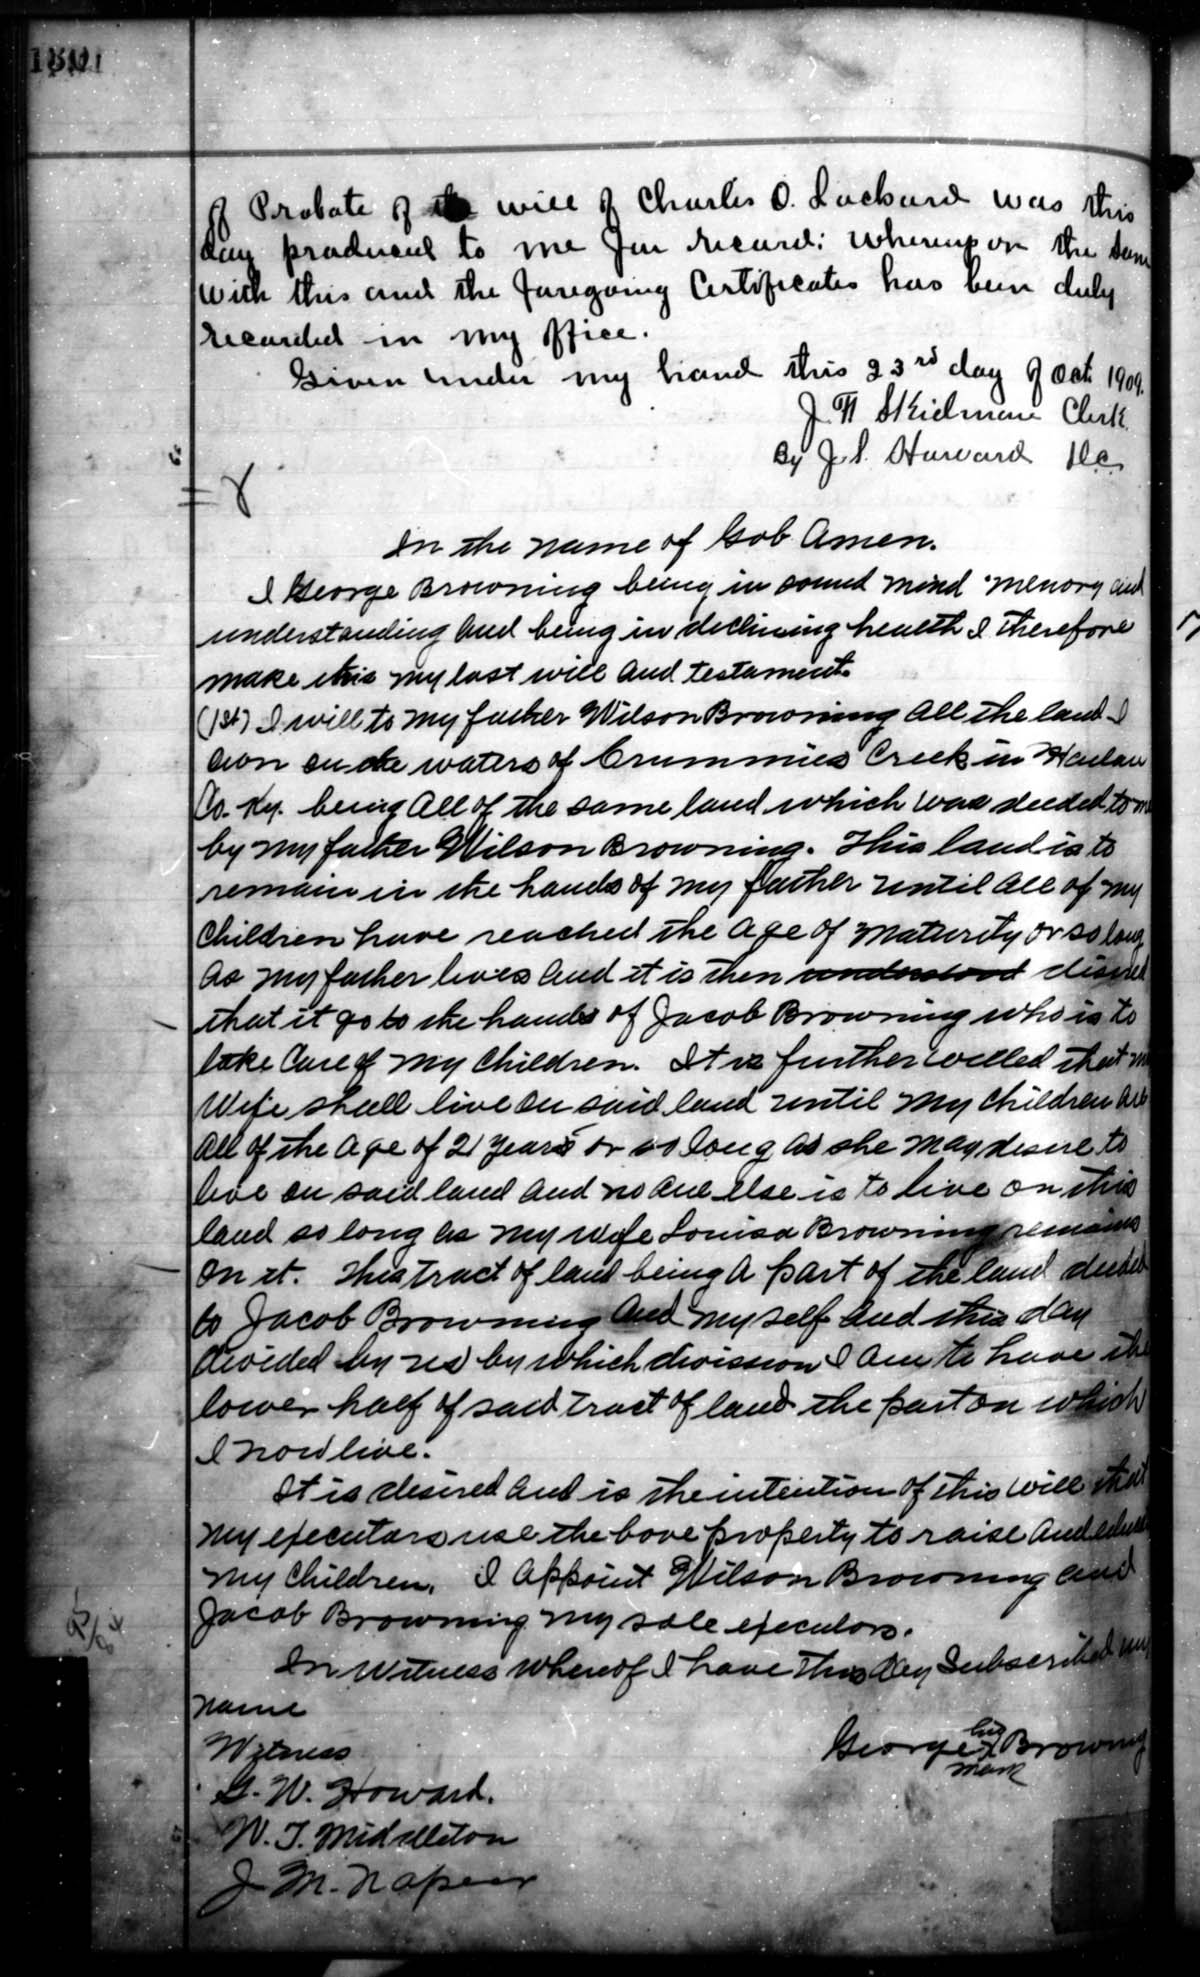 of Probate of the will of Charles O. Lockard was this
day produced to me for record: whereupon the same
with this and the foregoing Certificates has been duly
recorded in my office.
Given under my hand this 23rd day of Oct. 1909.
Skidmore Clerk.
By J. S. Howard D.C.
In the name of God Amen.
I George Browning being in sound mind memory and
understanding and being in declining health I therefore
make this my last will and testament.
(1st) I will to my father Wilson Browning all the land I
own on the waters of Crummies Creek in Harlan
Co. Ky. being all of the same land which was deeded to me
by my father Wilson Browning. This land is to
remain in the hands of my father until all of my
Children have reached the age of maturity or so long
as my father lives and it is then understood desired
that it go to the hands of Jacob Browning who is to
take care of my children. It is further willed that my
Wife shall live on said land until my children are
all of the age of 21 years or so long as she may desire to
live on said land and no one else is to live on this
land so long as my wife Louisa Browning remains
on it. This tract of land being a part of the land deeded
to Jacob Browning and myself and this day
divided by us by which division I am to have the
lower half of said tract of land the part on which
I now live.
It is desired and is the intention of this will that
my executors use the bove property to raise and educate
my children. I appoint Wilson Browning and
Jacob Browning my sole executors.
In Witness whereof I have this day subscribed my
name
George his x mark Browning
Witness
G. W. Howard.
W. T. Middleton
J. M. Napier